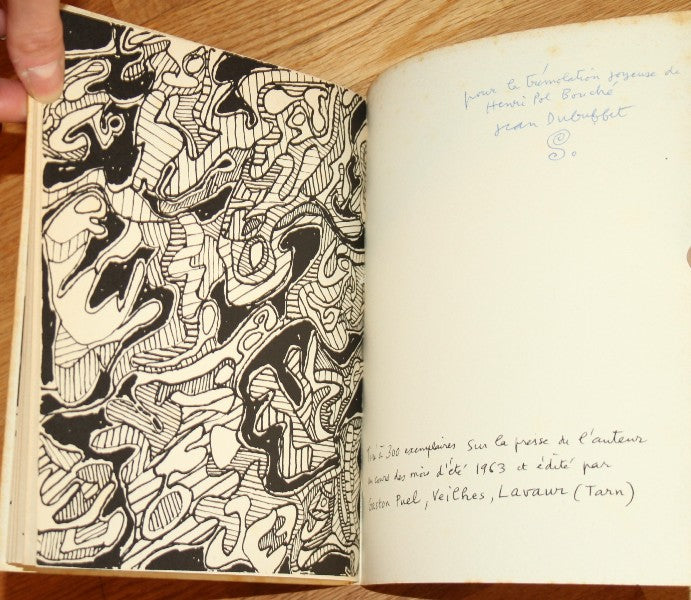 pour la trémolation joyeuse de
Henri Pol Bouché
Jean Dubuffet
S.
Tiré à 300 exemplaires sur la presse de l'auteur
au cours des mois d'été 1963 et édité par
Gaston Puel, Veilhes, Lavaur (Tarn)